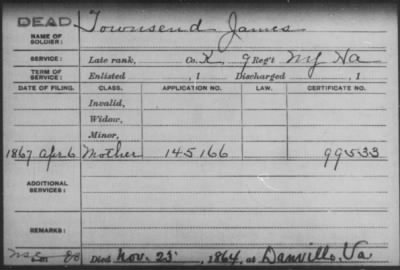 DEAD.
Townsend James
NAME OF SOLDIER:
SERVICE: Late rank, Co. K 9 Reg't NY HA
TERM OF SERVICE: Enlisted , 1 Discharged , 1
DATE OF FILING. CLASS. APPLICATION NO. LAW. CERTIFICATE NO.
Invalid,
Widow,
Minor,
1867 Apr 6 Mother 145166 99533
ADDITIONAL SERVICES:
REMARKS:
Died Nov. 25 , 1864, at Danville, Va